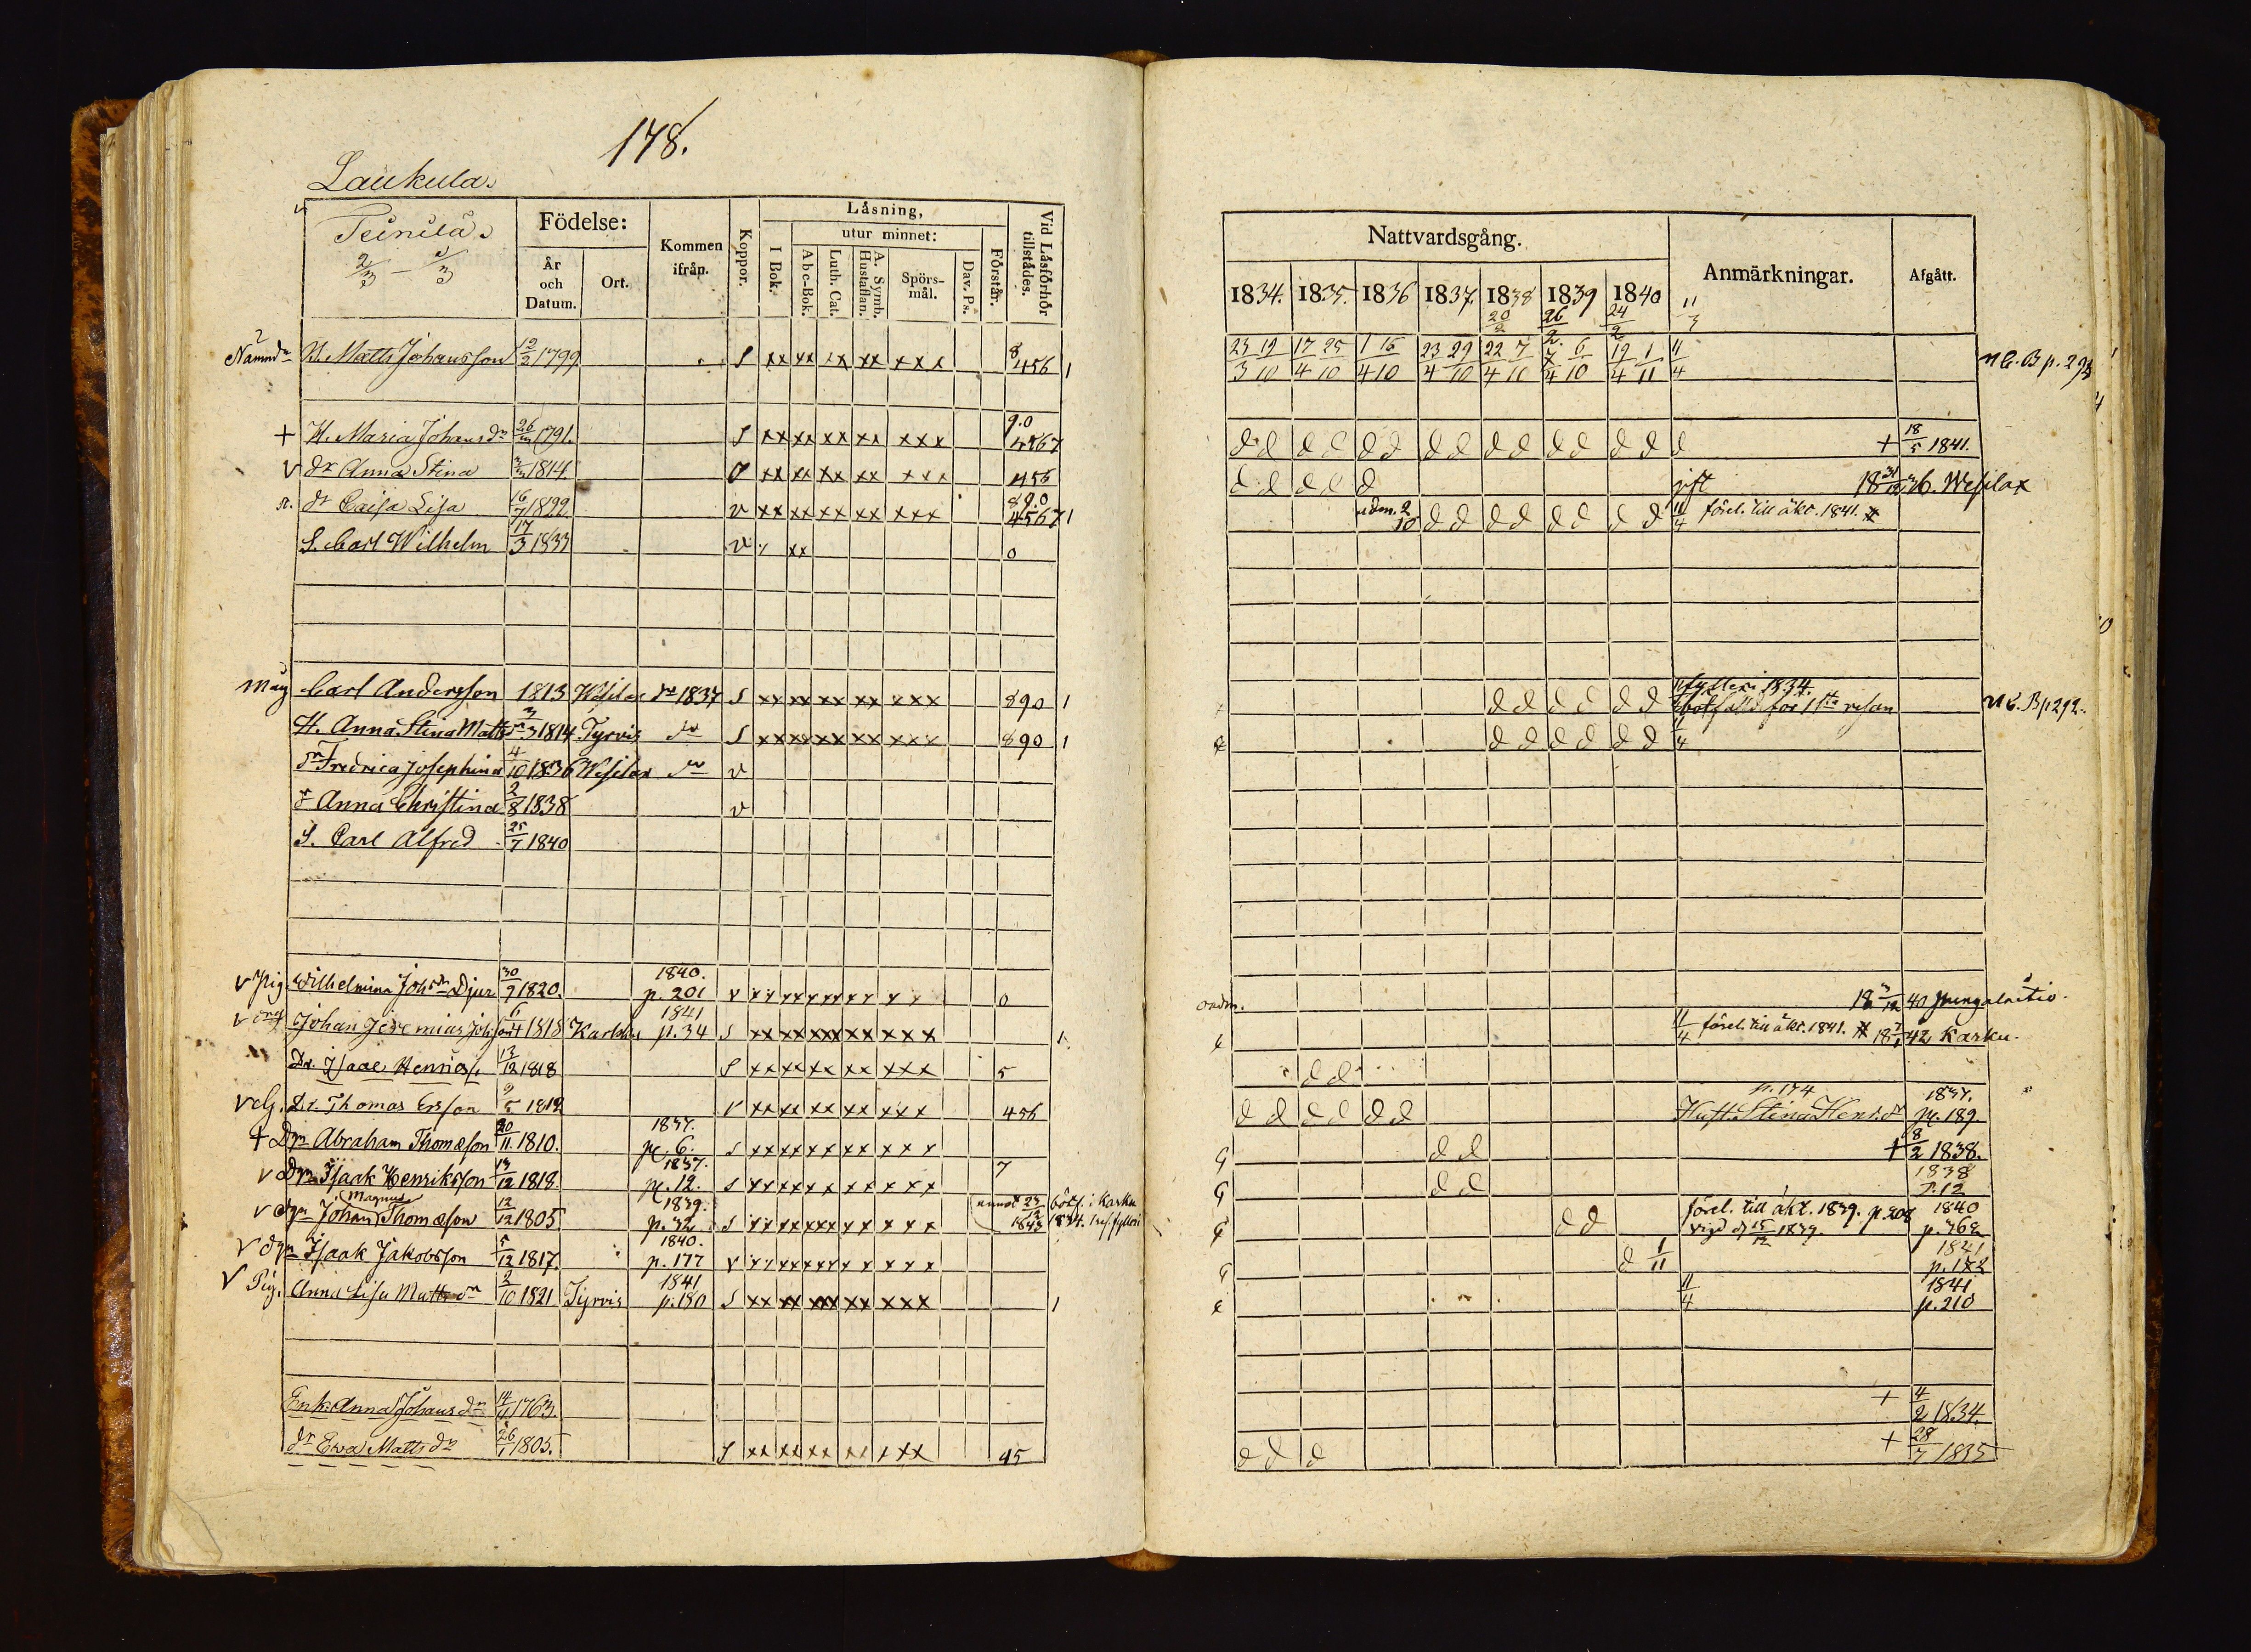 178.
Laukula.
Födelse:
Kommen ifrån.
Koppor.
Låsning,
utur minnet:
I Bok.
Abc-Bok.
Luth. Cat.
A. Symb. Hustaflan.
Spörs-mål.
Dav. Ps.
Förstår.
Vid Låsförhör tillstådes.
År och Datum.
Ort.
2/3
Nattvardsgång.
Anmärkningar.
Afgått.
1834. 1835. 1836 1837. 1838 1839 1840
20/2 26/2 24/2 11/3
Matts Johansson 12/2 1799 S xx xx xx xx xxx 8 456 1
17 25/4 10 1 16/4 10 23 29/4 10 22 7/4 10 19 1/4 11 11/4
H. Maria Johans dr 1791. S xx xx xx xx xxx 9.0 4567 d d d d d d d d d d d d d d d + 18/5 1841.
dr Anna Stina 1814. xx xx xx xx xxx 456 d d d d d gift 18 31/12 36. Wesilax
dr Cajsa Lisa 16/7 1822 v xx xx xx xx xxx 8 9.0 4567 1 adm. 2/10 d d d d d d d d 11/4 förel. till äkt. 1841.
S. Carl Wilhelm 17/3 1833 v xx 0
Måg Carl Andersson 1813 Wesilax dr 1837 S xx xx xx xx xxx 890 1 d d d d d d fylleri 1834. bötfälld för 1sta resan
H. Anna Stina Matts dr 3/3 1814 Tyrvis S xx xx xx xx xxx 890 1 d d d d d d 11/4
dr Fredrica Josephina 4/10 1836 Wesilax v
dr Anna Christina 2/8 1838 v
S. Carl Alfred 25/7 1840
v Pig. Wilhelmina Joh dr Djur 30/7 1820. 1840. p. 201 v xx xx xx xx xx 0 40
Johan Jeremias 6/4 1818 1841 p. 34 S xx xx xx xx xxx 1 11/4 förel. till äkt. 1841. 42 Karku.
Dr. Isaac Henricss. 13/12 1818 S xx xx xx xx xxx 5 d d
Dr. Thomas Ersson 1812 v xx xx xx xx xxx 456 d d d d d d p. 174 Hust. Stina Henr. dr 1837. p. 189.
+ Drn Abraham Thomasson 20/11 1810. 1837. p. 6. S xx xx xx xx xxx G d d + 8/2 1838.
v Drn Isaak Henriksson 13/12 1818. 1837. p. 12. S xx xx xx xx xxx 7 G d d 1838 p. 12
v drn Johan Magnus Thomasson 12/12 1805 1839. p. 32 S xx xx xx xx xxx 23/12 1843 bötf. i Karku 1834. 1 res. fylleri d d förel. till äkt. 1839. p. 208 vigd d 15/12 1839. 1840 p. 362
v drn Isaak Jakobsson 5/12 1817. 1840. p. 177 v xx xx xx xx xxx G d 1/11 1841 p. 182
v Pig. Anna Lisa Matts dr 2/10 1821 Tyrvis 1841 p. 180 S xx xx xx xx xxx 1 11/4 1841 p. 210
Enk: Anna Johans dr 1763. + 4/2 1834.
dr Ewa Matts dr 26/1 1805. S xx xx xx xx xxx 45 d d d + 28/7 1835